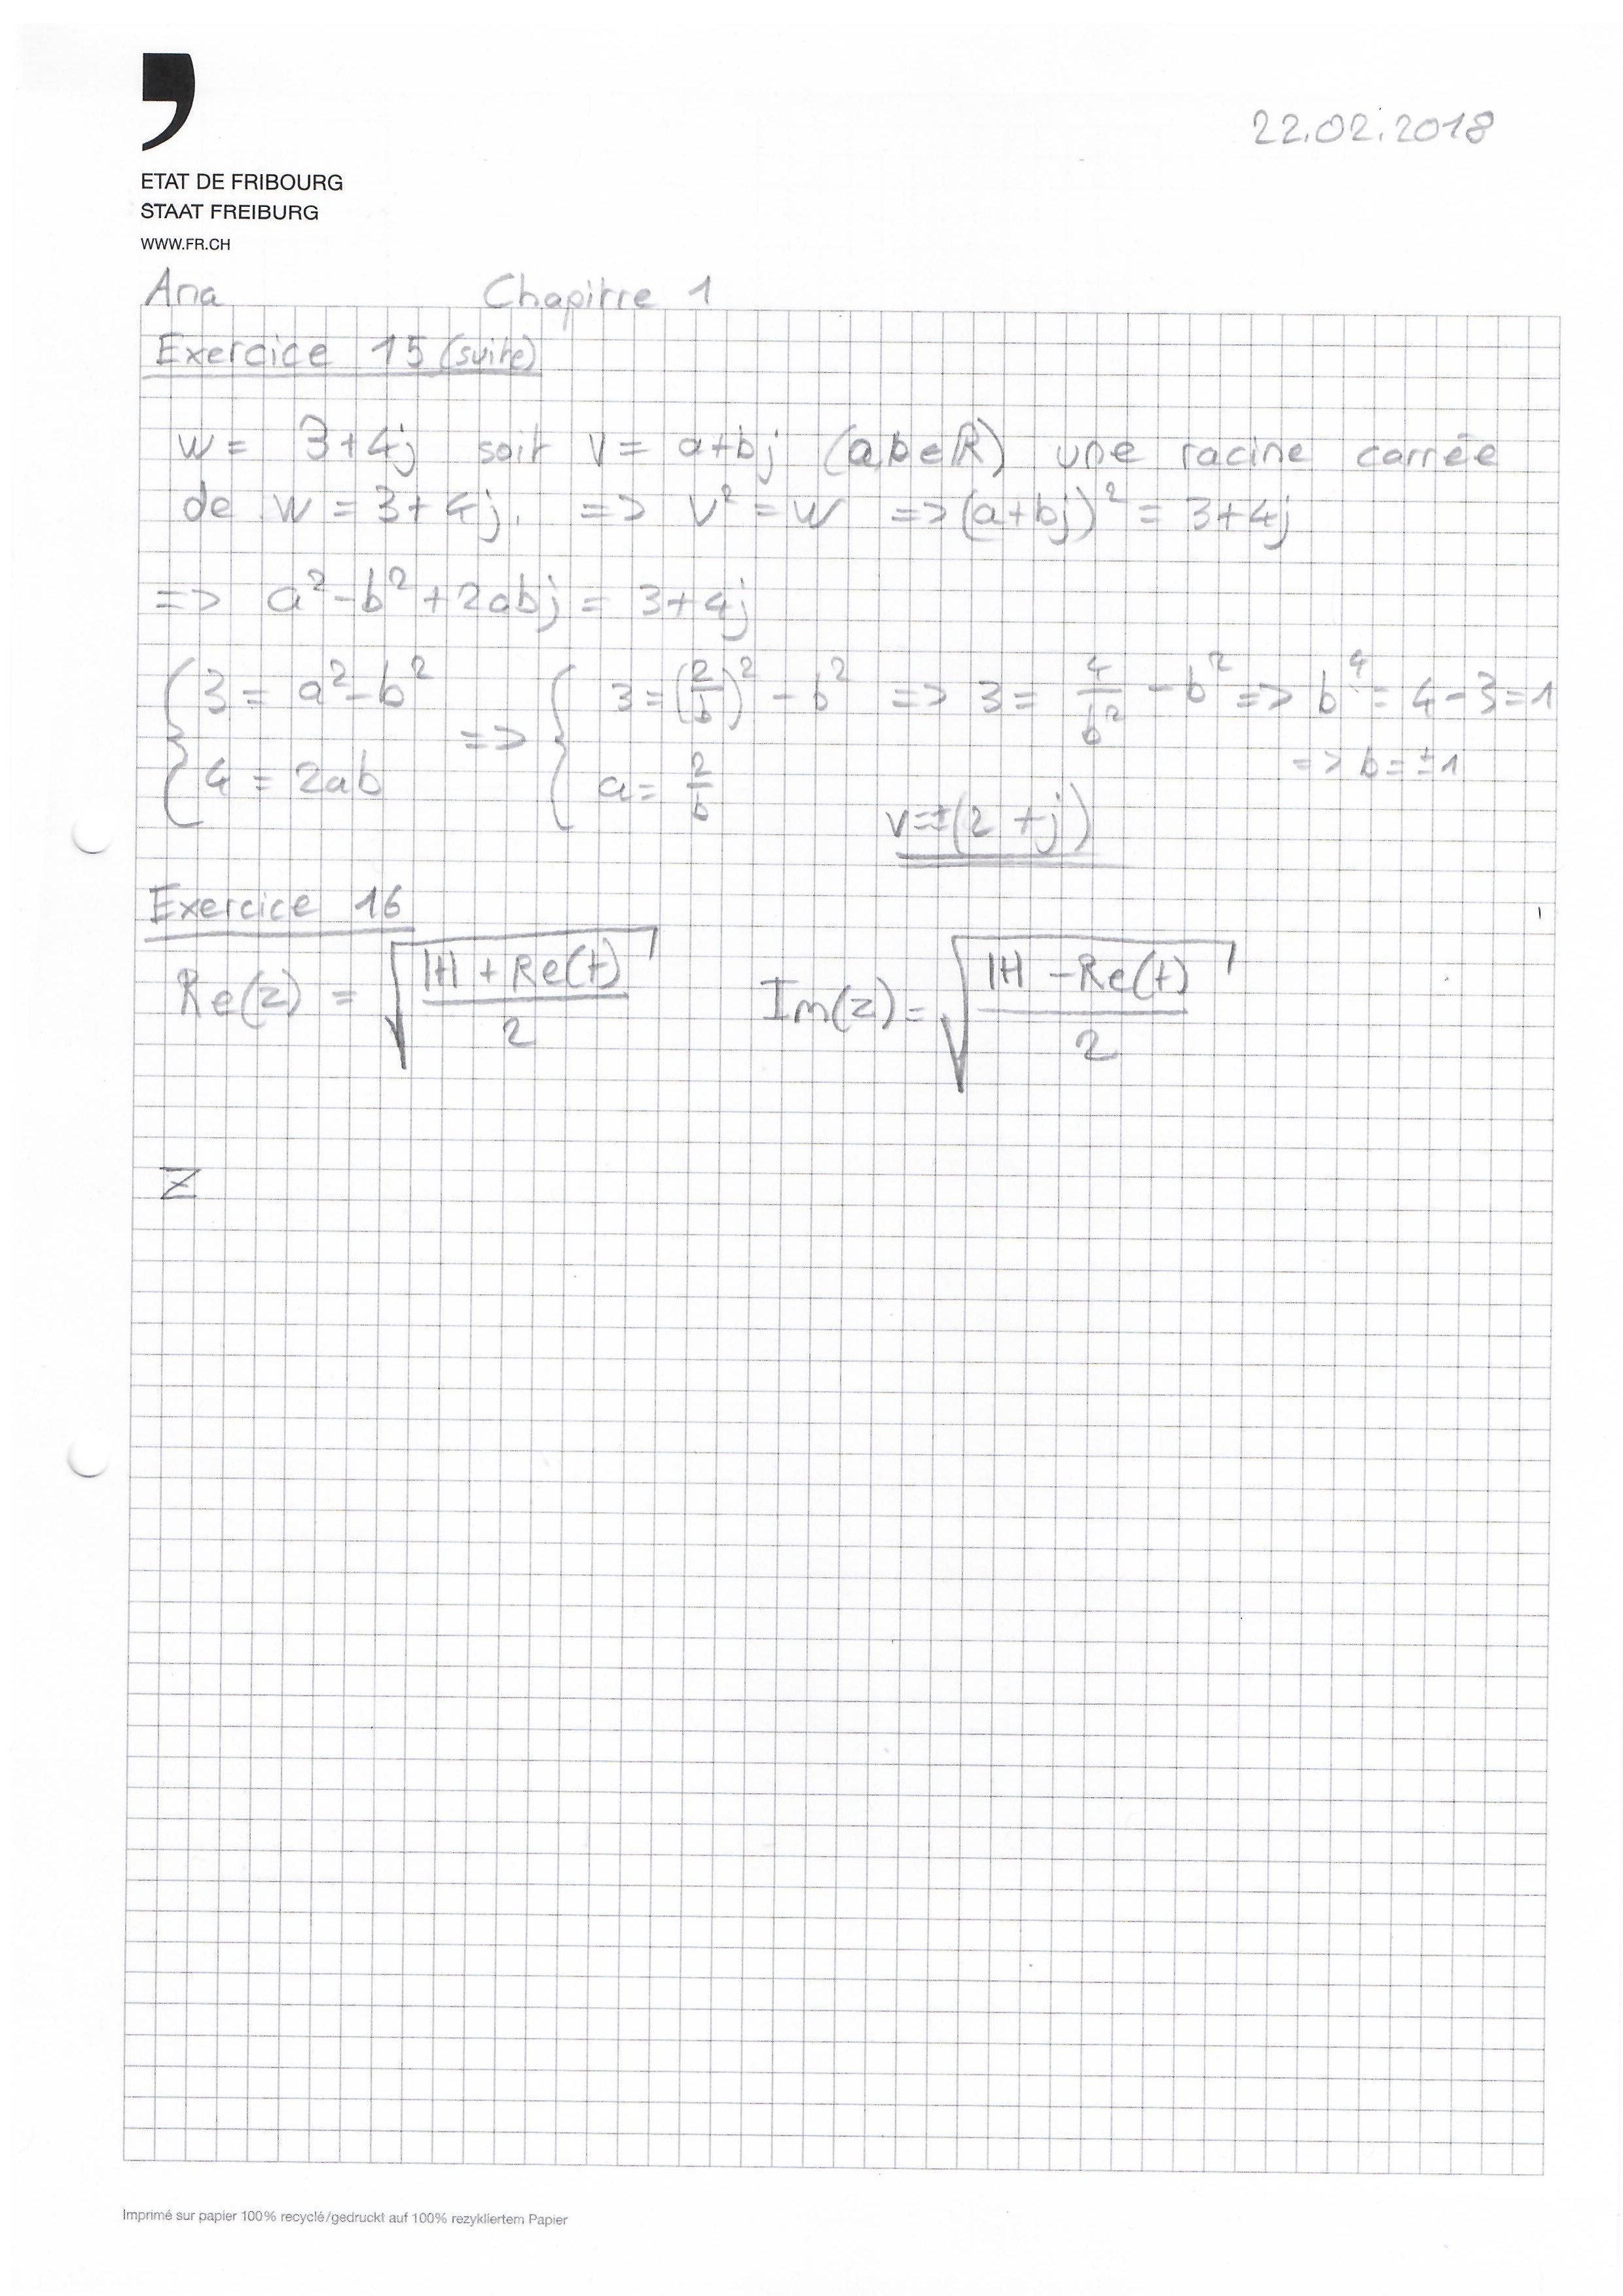 22.02.2018
ETAT DE FRIBOURG
STAAT FREIBURG
WWW.FR.CH
Ana Chapitre 1
Exercice 15 (suite)
w = 3+4j soit v = a+bj (a,b∈ℝ) une racine carrée
de w = 3+4j. => v² = w => (a+bj)² = 3+4j
=> a²-b²+2abj = 3+4j
{ 3 = a²-b² => { 3 = (2/b)² - b² => 3 = 4/b² - b² => b⁴ = 4-3=1
{ 4 = 2ab { a = 2/b => b = ±1
v=±(2+j)
Exercice 16
Re(z) = √((|t| + Re(t))/2) Im(z) = √((|t| - Re(t))/2)
Z
Imprimé sur papier 100% recyclé/gedruckt auf 100% rezykliertem Papier